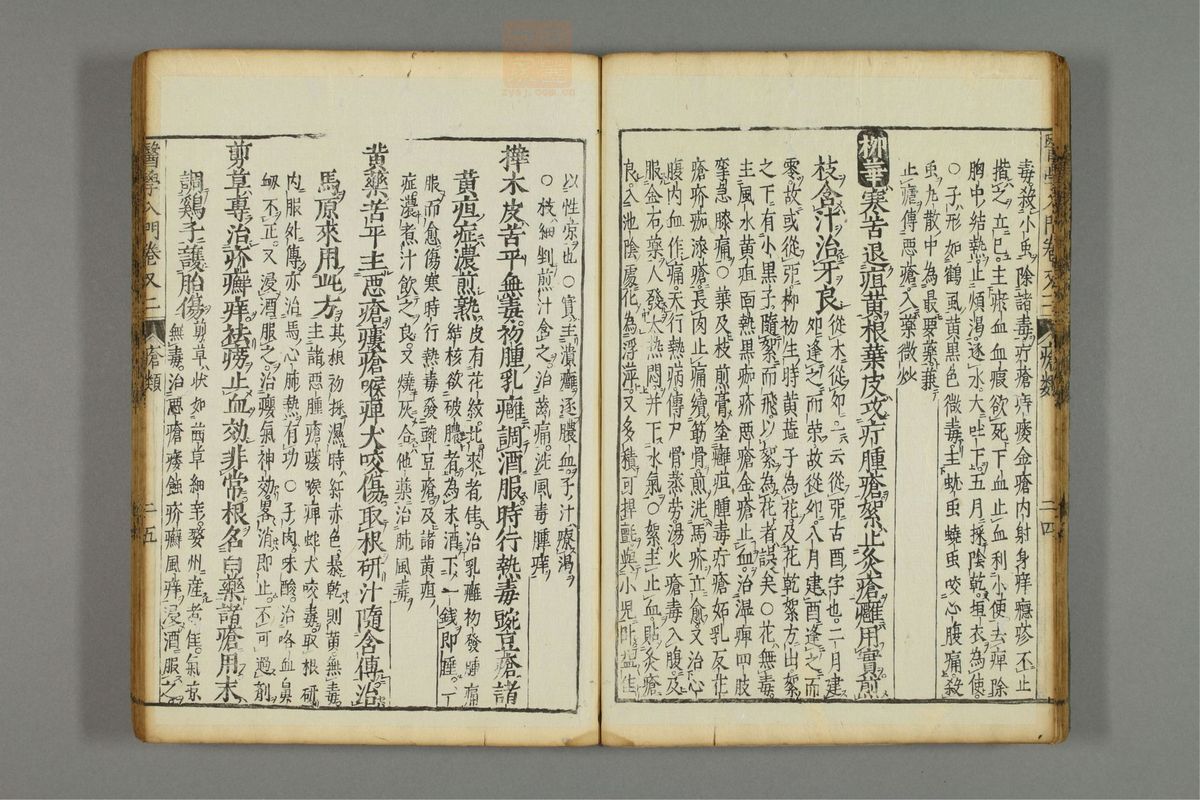 毒殺小虫除諸毒疔瘡痔瘻金瘡内射身痒癮疹不止
揩之立已主瘀血血瘕欲死下血止血利小便去痺除
胸中結熱止煩渴逐水大吐下五月採陰乾垣衣為使
○子形如鶴虱黄黒色微毒主蚘虫蟯虫咬心腹痛殺
虫丸散中為最要藥兼
止瘧傅悪瘡入藥微炒
柳華寒苦退疸黄根葉皮攻疔腫瘡絮止灸瘡癰用實煎
枝含汁治牙良
從木從卯二云從丣古酉字也二月建
卯逢之而荣故從卯八月建酉逢之而
零故或從丣柳初生時黄蘂子為花及花乾絮方出絮
之下有小黒子隨絮而飛以絮為花者誤矣○花無毒
主風水黄疸面熱黒痂疥悪瘡金瘡止血治濕痺四肢
攣急膝痛○葉及枝煎膏塗癰疽腫毒疔瘡妬乳反花
瘡疥痂漆瘡長肉止痛續筋骨煎洗馬疥立愈又治心
腹内血作痛天行熱病傳尸骨蒸労湯火瘡毒入腹及
服金石藥人發大熱悶并下水氣○絮主止血貼灸瘡
良入池陰處化為浮萍又多積可捍氈與小児臥益佳
以性凉也○實主潰癰逐膿血子汁療渴
○枝細剉煎汁含之治齒痛洗風毒腫痒
樺木皮苦平無毒初腫乳癰調酒服時行熱毒豌豆瘡諸
黄疸症濃煎熟
皮有花紋北來者佳治乳癰初發腫痛
結核欲破膿者為末酒下一錢即睡一
服而愈傷寒時行熱毒發豌豆瘡及諸黄疸
症濃煮汁飲之良又燒灰合他藥治肺風毒
黄藥苦平主悪瘡瘻瘡喉痺犬咬傷取根研汁隨含傅治
馬原來用此方
其根初採濕時紅赤色暴乾則黄無毒
主諸悪腫瘡瘻喉痺蛇犬咬毒取根研
内服外傅亦治馬心肺熱有功○子肉味酸治咯血鼻
衂不止又浸酒服之治癭氣神効畧消即止不可過劑
剪草專治疥癬痒祛癆止血効非常根名白藥諸瘡用末
調鷄子護胎傷
剪草状如茜草細辛婺州産者佳氣凉
無毒治悪瘡瘻蝕疥癬風痒浸酒服之
醫學入門卷又二
瘡類
二四
醫學入門卷又二
瘡類
二五
zysj.com.cn